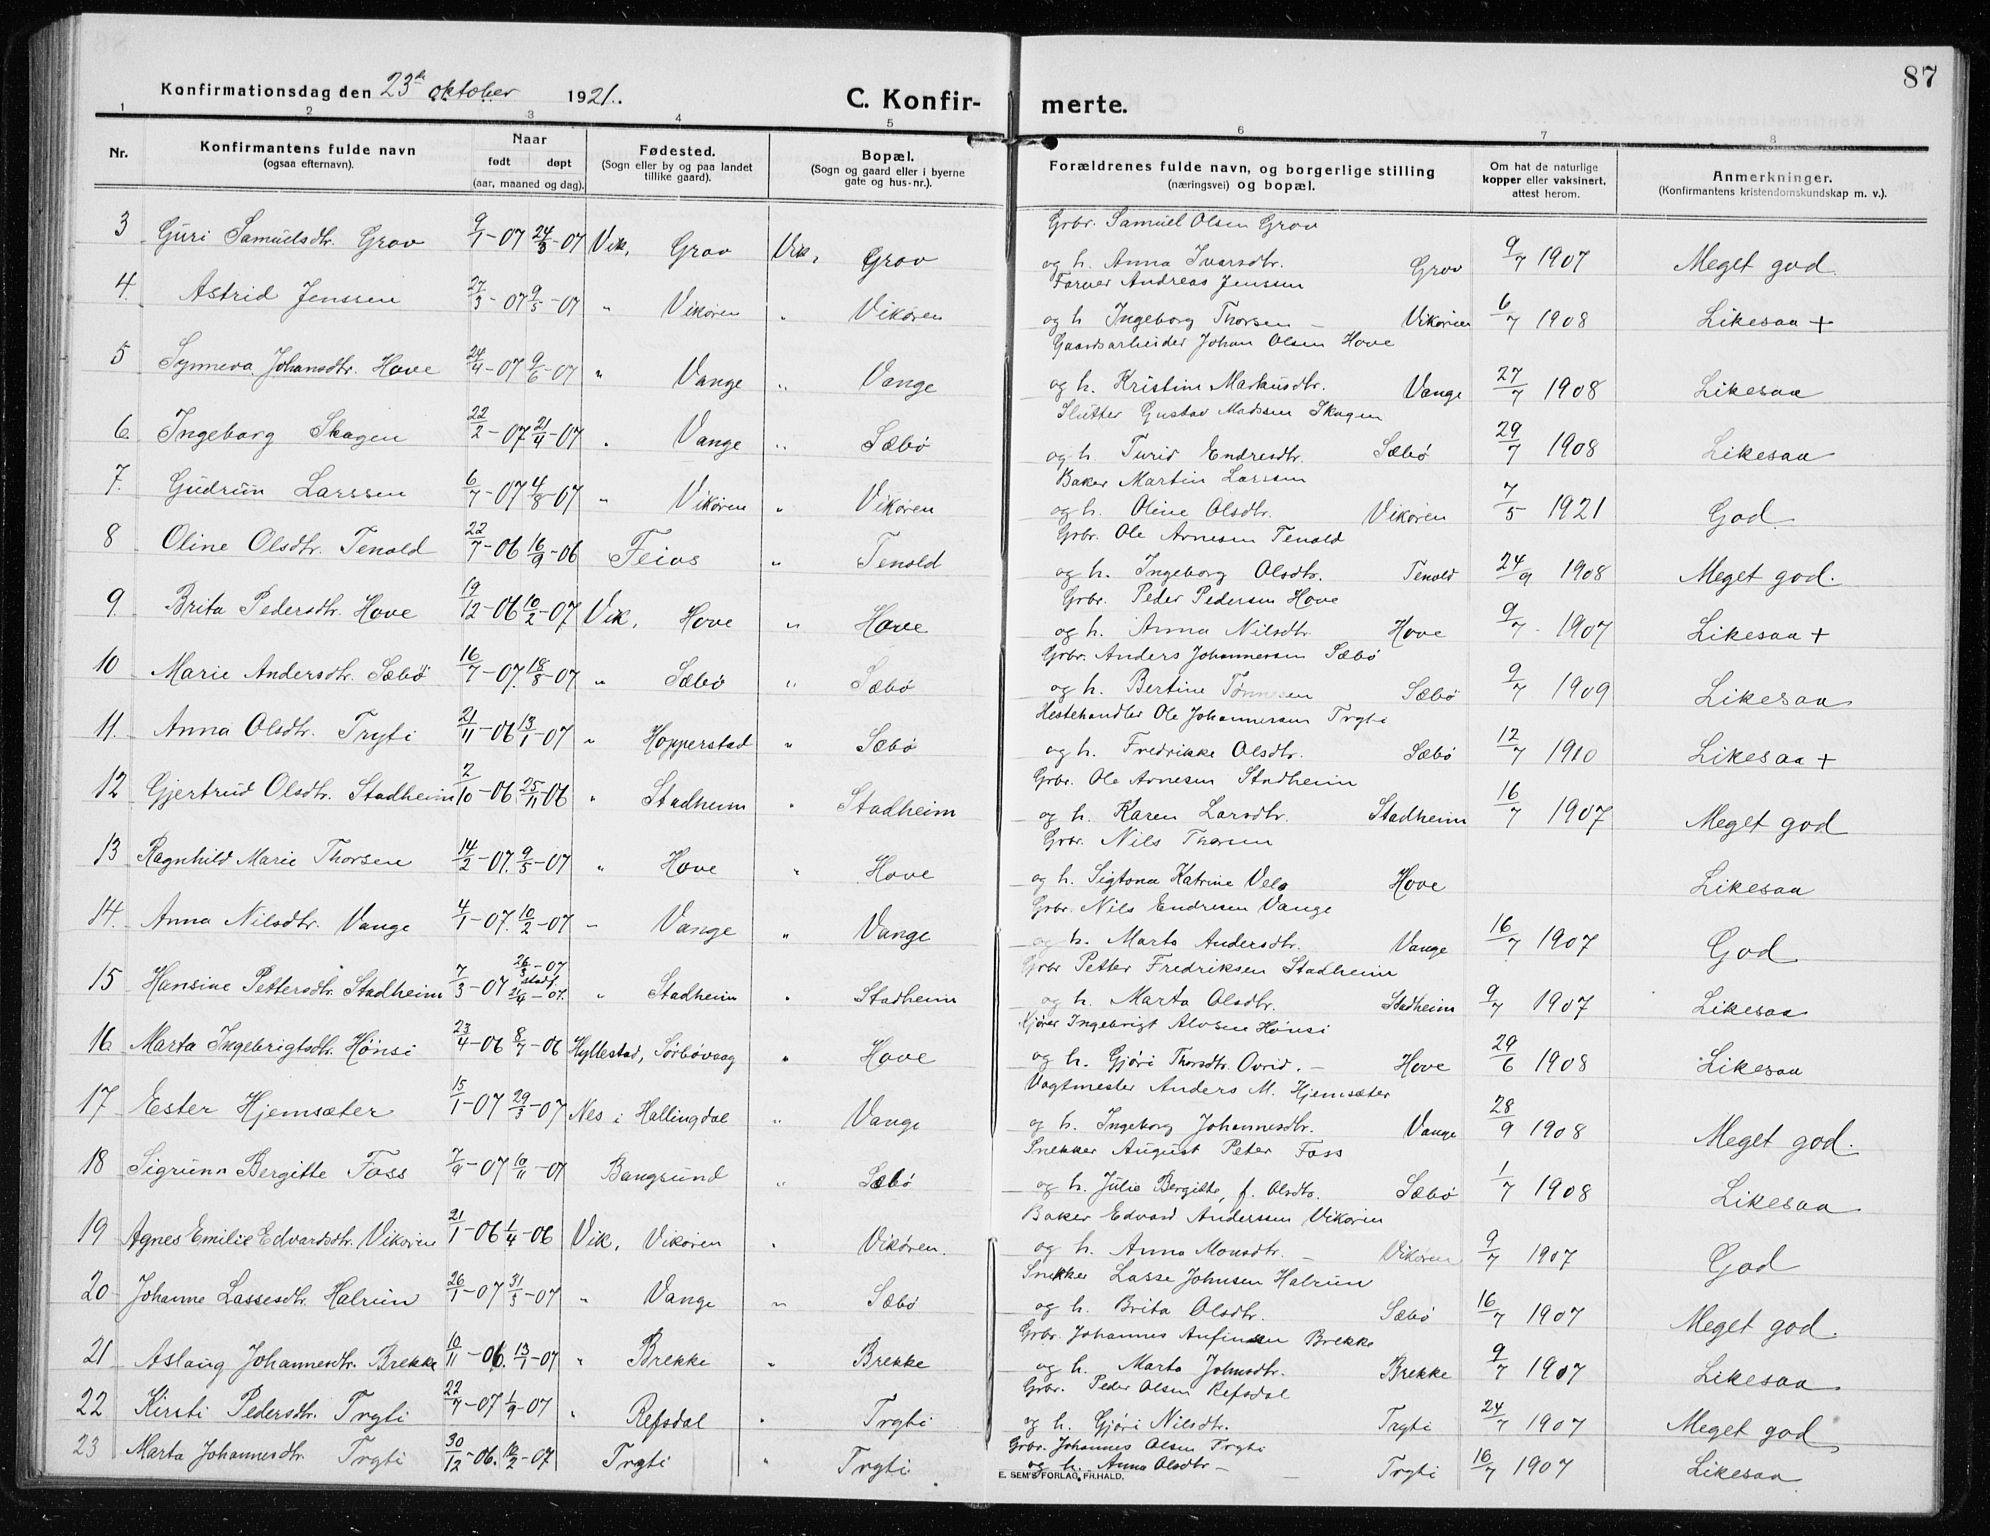 87
Konfirmationsdag den 23de oktober 1921.
C. Konfirmerte.
1 2 3 4 5 6 7 8
Nr. Konfirmantens fulde navn (ogsaa efternavn). Naar født døpt (aar, maaned og dag). Fødested. (Sogn eller by og paa landet tillike gaard). Bopæl. (Sogn og gaard eller i byerne gate og hus-nr.). Forældrenes fulde navn, og borgerlige stilling (næringsvei) og bopæl. Om hat de naturlige kopper eller vaksinert, attest herom. Anmerkninger. (Konfirmantens kristendomskundskap m. v.).
3 Guri Samuelsdtr. Grov 9/1-07 24/3-07 Vik, Grov Vik, Grov Grbr. Samuel Olsen Grov
og h. Anna Ivarsdtr. Grov 9/7 1907 Meget god.
4. Astrid Jenssen 27/3-07 9/5-07 " Vikøren " Vikøren Farver Andreas Jenssen
og h. Ingeborg Thorsen - Vikøren 6/7 1908 Likesaa +
5 Synneva Johansdtr. Hove 24/4-07 9/6-07 " Vange " Vange Gaardsarbeider Johan Olsen Hove
og h. Kristine Markusdtr. Vange 27/7 1908 Likesaa
6. Ingeborg Skagen 22/2-07 21/4-07 " Vange " Sæbø Slutter Gustav Madssen Skagen
og h. Turid Endresdtr. Sæbø 29/7 1908 Likesaa
7. Gudrun Larssen 6/7-07 4/8-07 " Vikøren " Vikøren Baker Martin Larssen
og h. Oline Olsdtr. Vikøren 7/5 1921 God
8 Oline Olsdtr. Tenold 22/7-06 16/9-06 Feios " Tenold Grbr. Ole Arnesen Tenold
og h. Ingeborg Olsdtr. Tenold 24/9 1908 Meget god.
9. Brita Pedersdtr. Hove 19/12-06 10/2-07 Vik, Hove " Hove Grbr. Peder Pedersen Hove
og h. Anna Nilsdtr. Hove 9/7 - 1907 Likesaa +
10 Marie Andersdtr. Sæbø 16/7-07. 18/8-07 " Sæbø " Sæbø Grbr. Anders Johannessen Sæbø
og h. Bertine Tønnesen Sæbø 9/7 1909 Likesaa
11. Anna Olsdtr. Tryti 21/11-06 13/1-07 " Hopperstad " Sæbø Hestehandler Ole Johannessen Tryti
og h. Fredrikke Olsdtr. Sæbø 12/7 1910 Likesaa +
12 Gjertrud Olsdtr. Stadheim 2/10-06 25/11-06 " Stadheim " Stadheim Grbr. Ole Arnesen Stadheim
og h. Karen Larsdtr. Stadheim 16/7 1907 Meget god
13 Ragnhild Marie Thorsen 14/2-07. 9/5-07 " Hove " Hove Grbr. Nils Thorsen
og h. Sigtona Katrine Hove Likesaa
14. Anna Nilsdtr. Vange 4/1-07. 10/2-07 " Vange " Vange Grbr. Nils Endresen Vange
og h. Marta Andersdtr. Vange 16/7 1907 God
15 Hansine Pettersdtr. Stadheim 7/3-07 26/3-07 stadf. 21/4-07. " Stadheim " Stadheim Grbr Petter Fredriksen Stadheim
og h. Marta Olsdtr. Stadheim 9/7 1907 Likesaa
16. Marta Ingebrigtsdtr. Hønsi 23/4-06 8/7-06 Hyllestad, Sørbøvaag " Hove Kjører Ingebrigt Alvsen Hønsi
og h. Gjøri Thorsdtr. Ovrid. - Hove 29/6 1908 Likesaa
17 Ester Hjemsæter 15/1-07 29/3-07 Nes i Hallingdal " Vange Vagtmester Anders M. Hjemsæter
og h. Ingeborg Johannesdtr. Vange 28/9 1908 Meget god.
18 Sigrunn Bergitte Foss 7/9-07 10/11-07 Bangsund " Sæbø Snekker August Peter Foss
og h. Julie Bergitte, f. Olsdtr. Sæbø 1/7 1908 Likesaa
19 Agnes Emilie Edvardsdtr. Vikøren 21/1-06 1/4-06 Vik, Vikøren " Vikøren. Baker Edvard Anderssen Vikøren
og h. Anna Monsdtr. - Vikøren 9/7 1907 God
20 Johanne Lassesdtr. Halrun 26/1-07 31/3-07 " Vange " Sæbø Snekker Lasse Johnsen Halrun
og h. Brita Olsdtr. Sæbø 16/7 1907 Meget god.
21 Aslaug Johannesdtr. Brekke 10/11-06. 13/1-07 " Brekke " Brekke Grbr. Johannes Anfinsen Brekke
og h. Marta Johnsdtr. Brekke 9/7 1907 Likesaa
22 Kirsti Pedersdtr. Tryti 22/7-07 1/9-07 " Refsdal " Tryti Grbr. Peder Olsen Refsdal
og h. Gjøri Nilsdtr. Tryti 24/7 1907 Meget god
23 Marta Johannesdtr. Tryti 30/12-06. 10/2-07 Tryti " Tryti Grbr. Johannes Olsen Tryti
og h. Anna Olsdtr - - Tryti 16/7 1907 Likesaa
E. SEM'S FORLAG, FR.HALD.